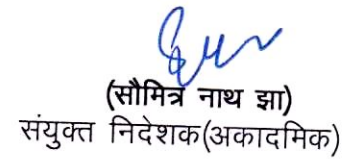 (सौमित्र नाथ झा)
संयुक्त निदेशक(अकादमिक)